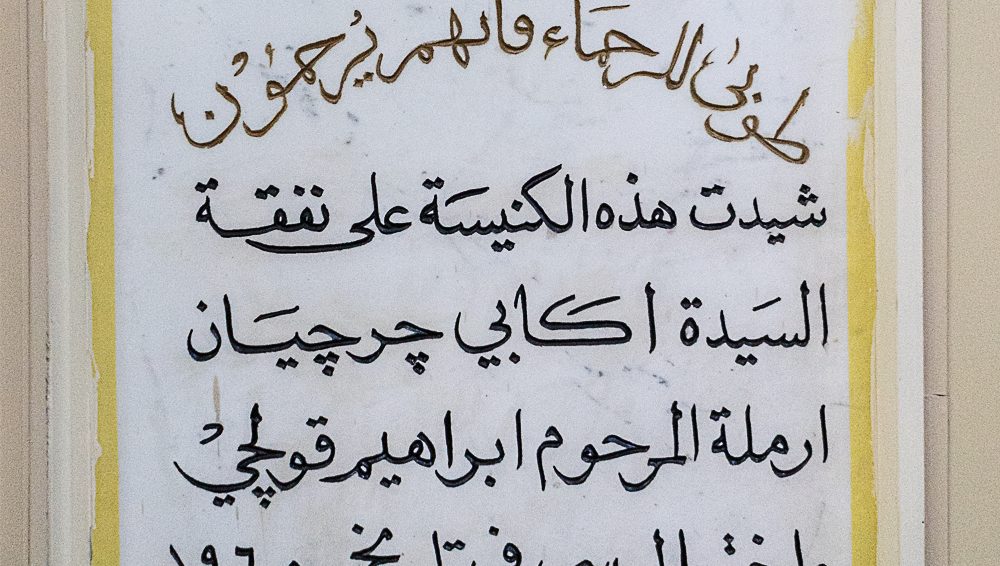 طوبى للرحماء فانهم يرحمون
شيدت هذه الكنيسة على نفقة
السيدة اكابي چرچيان
ارملة المرحوم ابراهيم قولچي